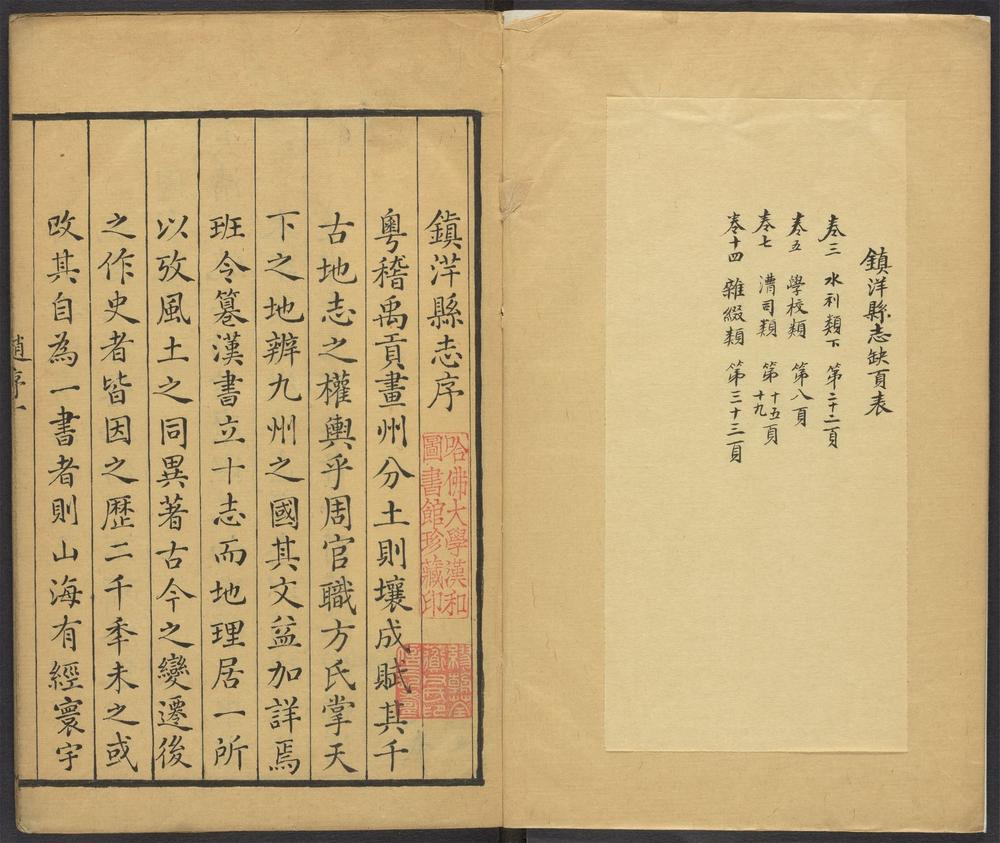 鎮洋縣志缺頁表
卷三 水利類下 第二十二頁
卷五 學校類 第八頁
卷七 漕司類 第十五頁 十九
卷十四 雜綴類 第三十三頁
鎮洋縣志序
粵稽禹貢畫州分土則壤成賦其千
古地志之權輿乎周官職方氏掌天
下之地辨九州之國其文益加詳焉
班令篹漢書立十志而地理居一所
以攷風土之同異著古今之變遷後
之作史者皆因之歷二千季未之或
改其自為一書者則山海有經寰宇
趙序 一
哈佛大學漢和
圖書館珍藏印